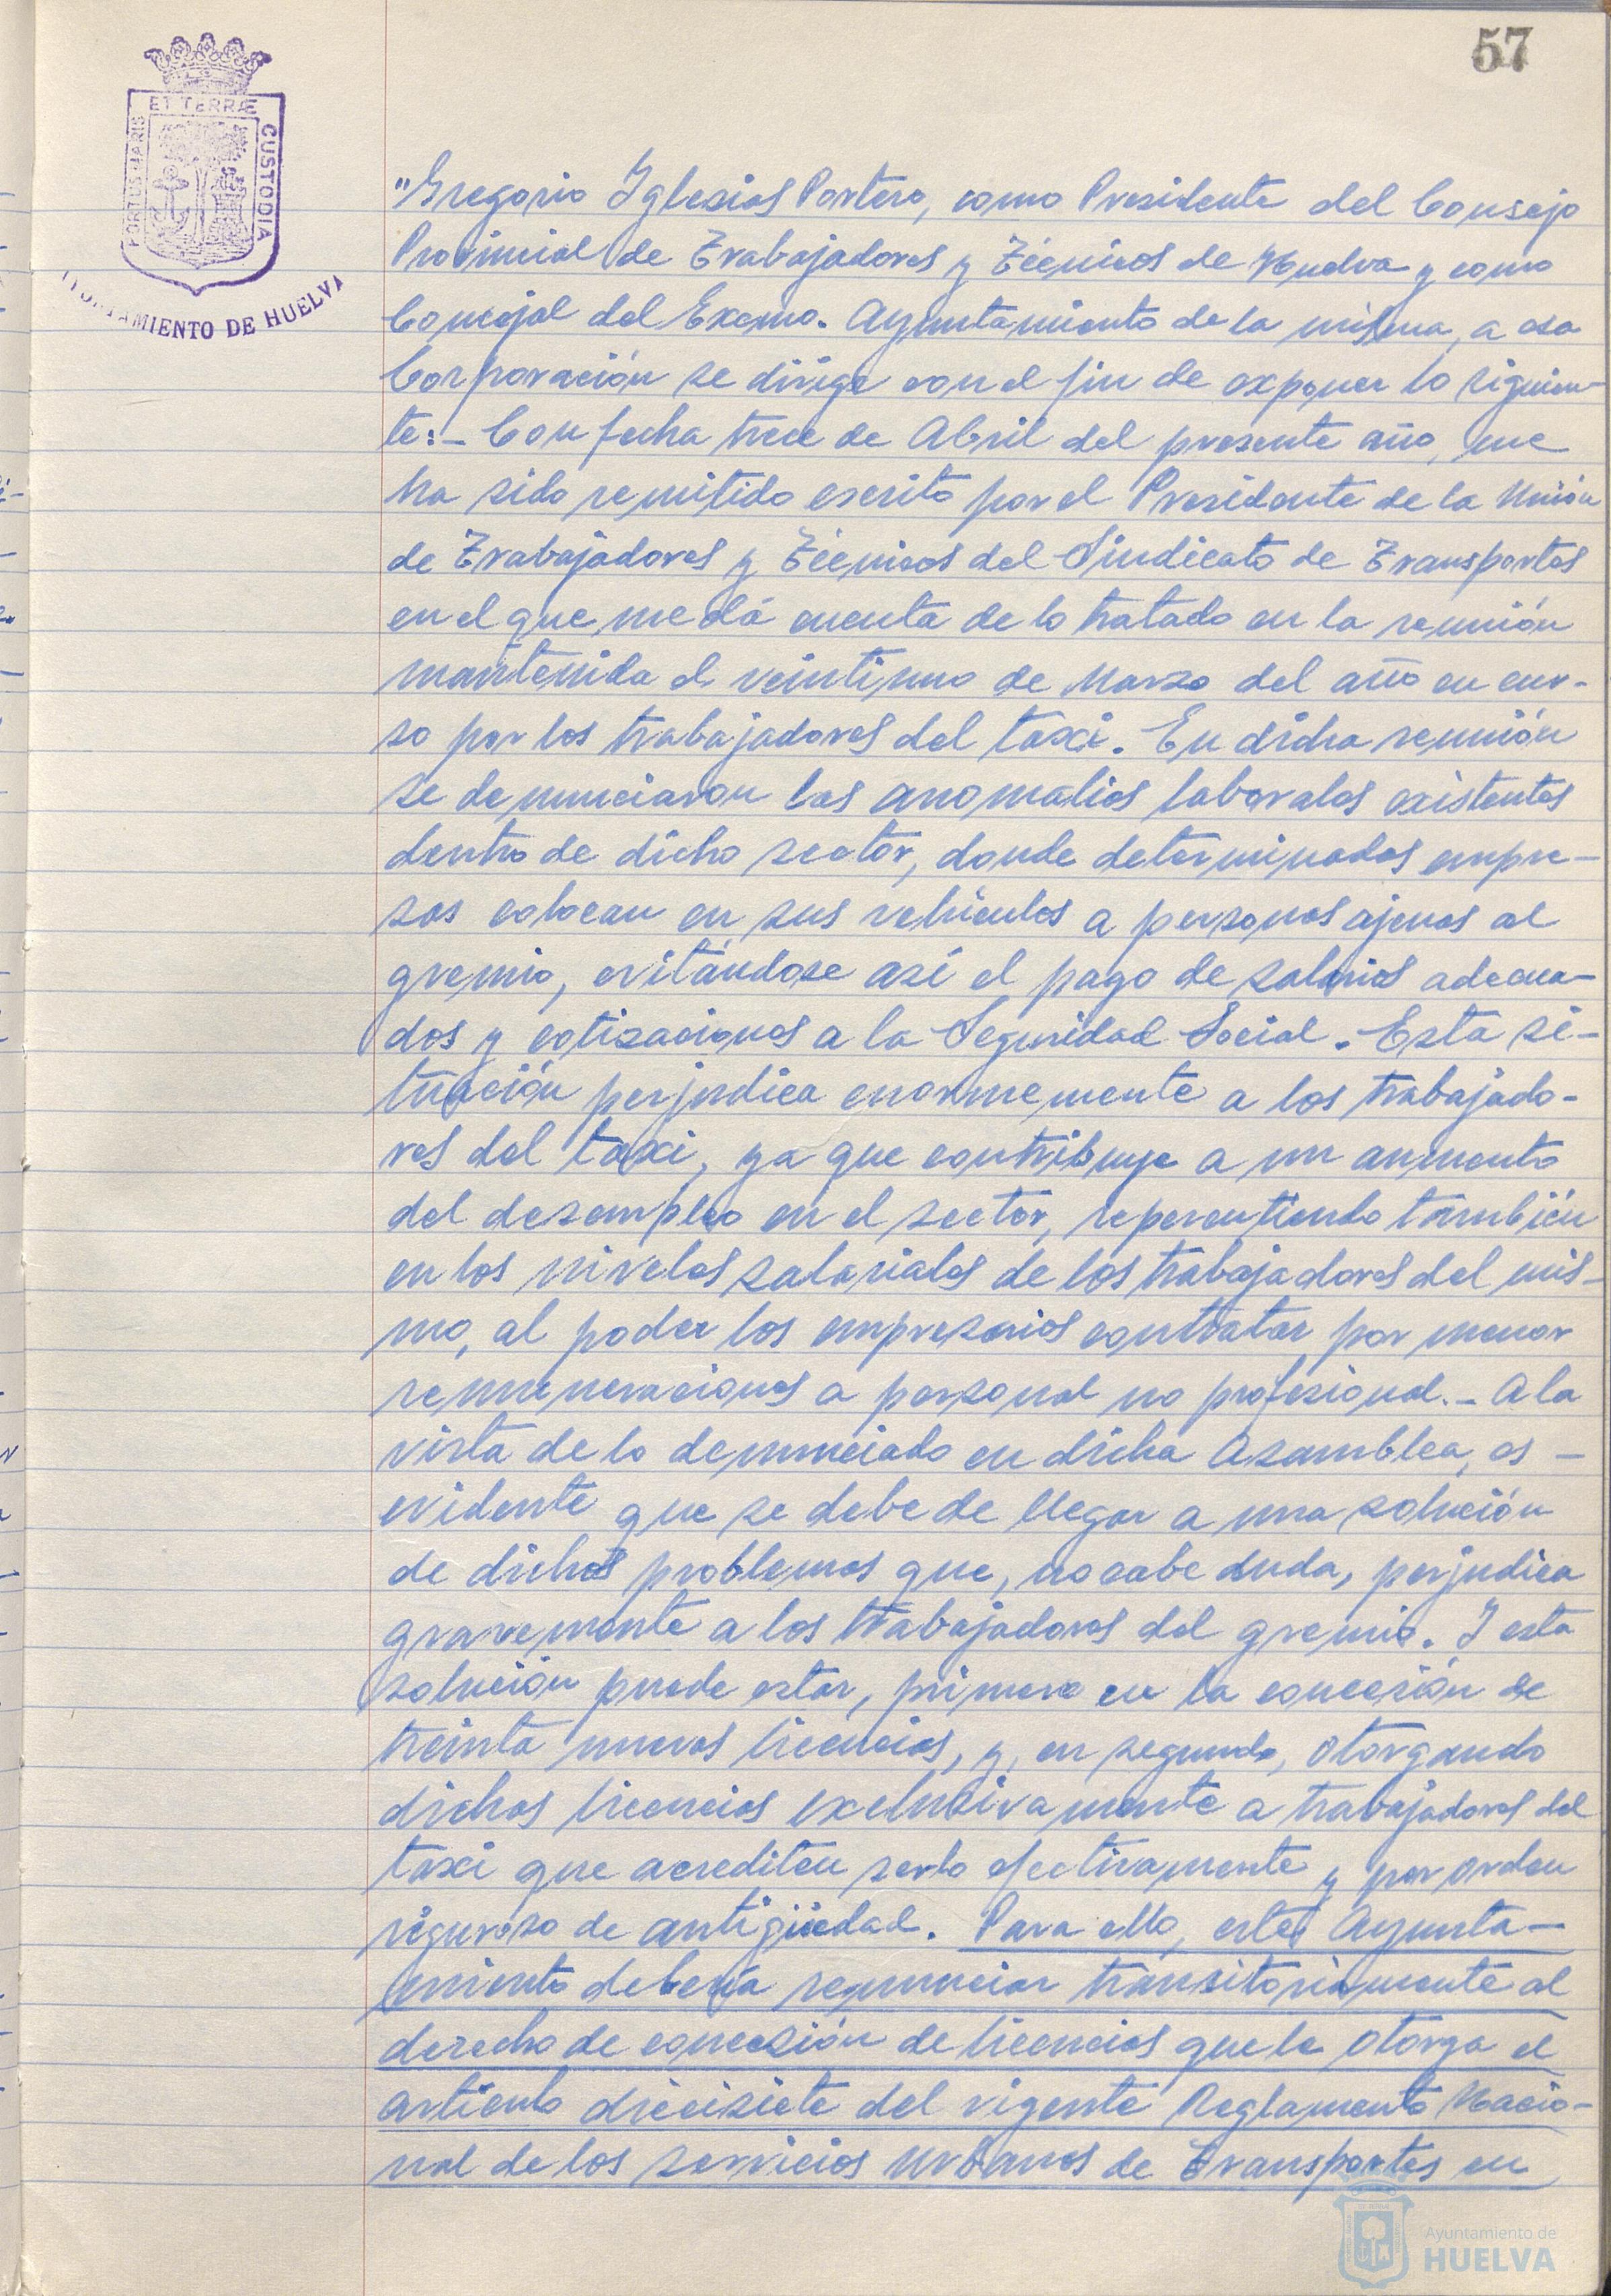 57
ET TERRÆ
PORTUS MARIS
CUSTODIA
AYUNTAMIENTO DE HUELVA
"Gregorio Iglesias Portero, como Presidente del Consejo
Provincial de Trabajadores y Técnicos de Huelva y como
Concejal del Excmo. Ayuntamiento de la misma, a esa
Corporación se dirige con el fin de exponer lo siguien-
te:- Con fecha trece de Abril del presente año, me
ha sido remitido escrito por el Presidente de la Unión
de Trabajadores y Técnicos del Sindicato de Transportes
en el que me dá cuenta de lo tratado en la reunión
mantenida el veintiuno de Marzo del año en cur-
so por los trabajadores del taxi. En dicha reunión
se denunciaron las anomalías laborales existentes
dentro de dicho sector, donde determinadas empre-
sas colocan en sus vehículos a personas ajenas al
gremio, evitándose así el pago de salarios adecua-
dos y cotizaciones a la Seguridad Social. Esta si-
tuación perjudica enormemente a los trabajado-
res del taxi, ya que contribuye a un aumento
del desempleo en el sector, repercutiendo también
en los niveles salariales de los trabajadores del mis-
mo, al poder los empresarios contratar por menor
remuneraciones a personal no profesional.- A la
vista de lo denunciado en dicha Asamblea, es -
evidente que se debe de llegar a una solución
de dichos problemas que, no cabe duda, perjudica
gravemente a los trabajadores del gremio. Y esta
solución puede estar, primero en la concesión de
treinta nuevas licencias, y, en segundo, otorgando
dichas licencias exclusivamente a trabajadores del
taxi que acrediten serlo efectivamente y por orden
riguroso de antigüedad. Para ello, este Ayunta-
miento debería renunciar transitoriamente al
derecho de concesión de licencias que le otorga el
artículo diecisiete del vigente Reglamento Nacio-
nal de los servicios Urbanos de Transportes en
Ayuntamiento de
HUELVA